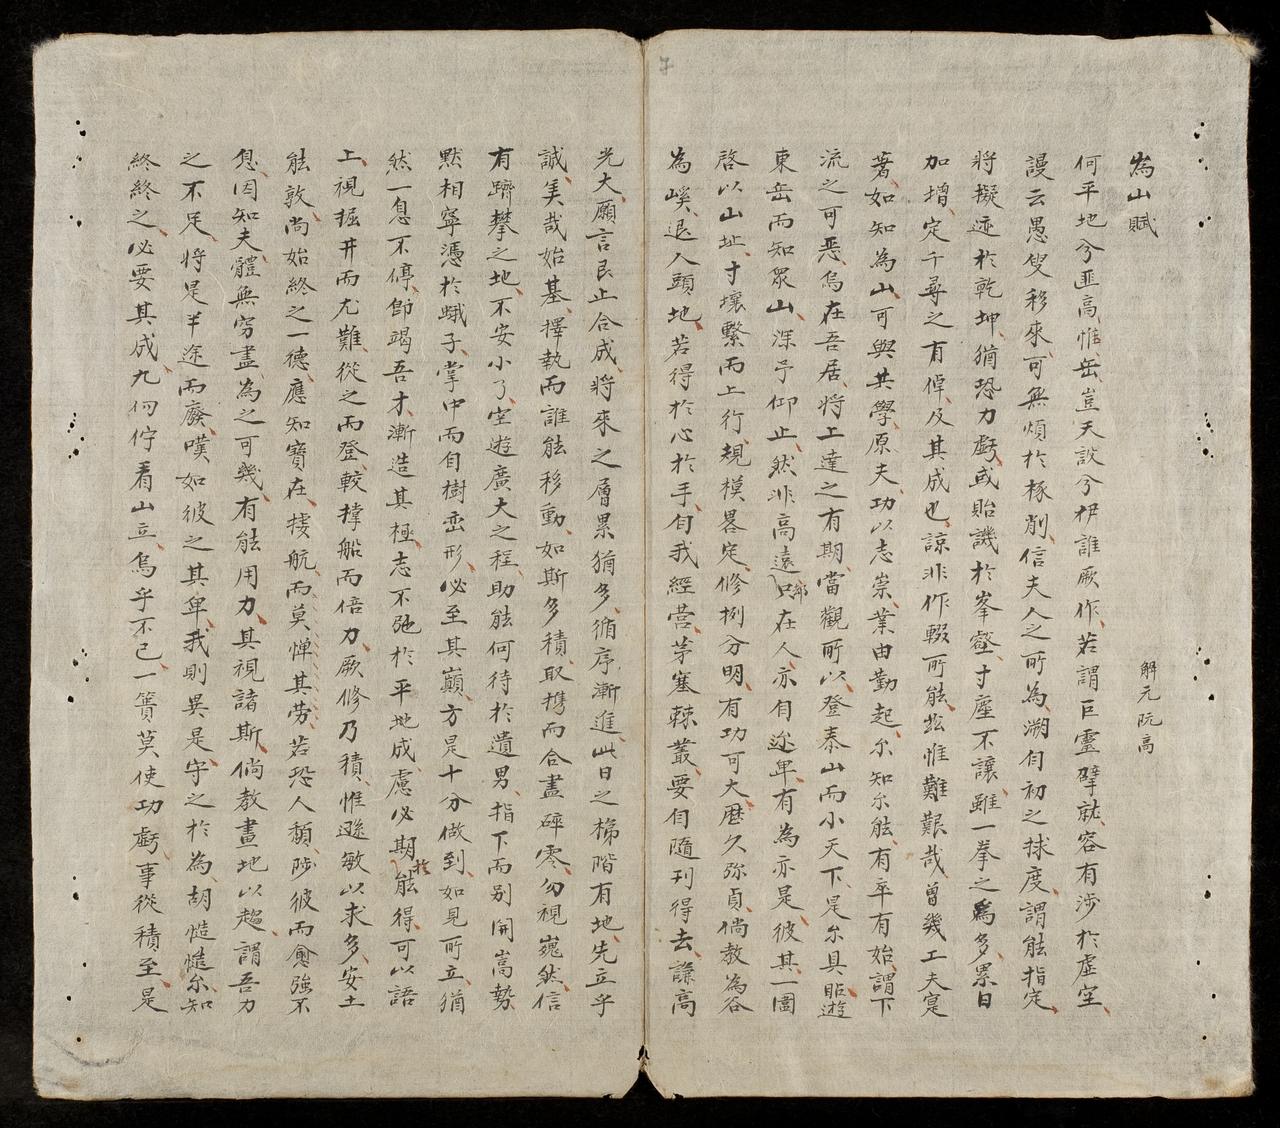 為山賦
解元阮高
何平地兮匪高惟岳豈天設兮伊誰厥作若謂巨靈擘就容有涉於虛空
謾云愚叟移來可無煩於琢削信夫人之所為溯自初之捄度謂能指定
將擬迹於乾坤猶恐力虧或貽譏於峯壑寸塵不讓雖一拳之為多累日
加增定千尋之有倬及其成也諒非作輟所能玆惟難艱哉曾幾工夫寔
著如知為山可與其學原夫功以志崇業由勤起尔知尔能有卒有始謂下
流之可惡烏在吾居將上達之有期當觀所以登泰山而小天下是尔具眡遊
東岳而知眾山深予仰止然非高遠只在人亦自迩卑有為亦是彼其一圖
啓以山址寸壤繫而上行規模畧定修挒分明有功可大歴久弥貞倘教為谷
為嶼退人頭地若得於心於手自我經营茅塞棘叢要自隨刊得去謙高
光大願言艮止合成將來之層累猶多循序漸進此日之梯階有地先立乎
誠美哉始基擇執而誰能移動如斯多積取携而合盡碎零勿視巍然信
有躋攀之地不安小了空遊廣大之程助能何待於遺男指下而别開嵩勢
默相寧憑於蛾子掌中而自樹峦形必至其巔方是十分做到如見所立猶
然一息不停卽竭吾才漸造其極志不弛於平地成慮必期於能得可以語
上視掘井而尤難從之而登較撑船而倍力厥修乃積惟遜敏以求多安土
能敦尚始終之一德應知寶在接航而莫憚其劳若恐人頼陟彼而愈強不
息因知夫體無穷盡為之可幾有能用力其視諸斯倘教畫地以趨謂吾力
之不足將是半途而廢嘆如彼之其卑我則異是守之於為胡慥慥尔知
終終之必要其成九仞佇看山立烏乎不已一簣莫使功虧事從積至是